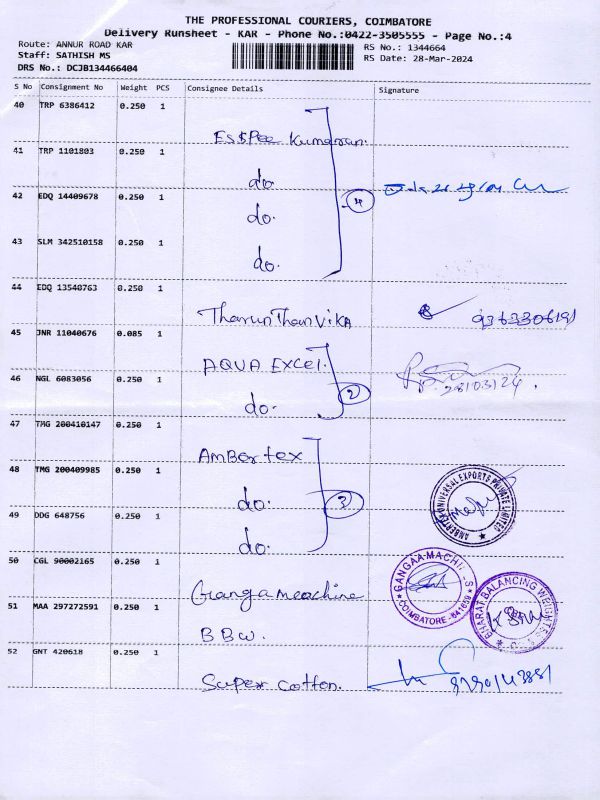 THE PROFESSIONAL COURIERS, COIMBATORE
Delivery Runsheet - KAR - Phone No.:0422-3505555 - Page No.:4
Route: ANNUR ROAD KAR
RS No.: 1344664
Staff: SATHISH MS
RS Date: 28-Mar-2024
DRS No.: DCJB134466404
S No Consignment No Weight PCS Consignee Details Signature
40 TRP 6386412 0.250 1
Es$Pee Kumaran.
41 TRP 1101803 0.250 1
do.
42 EDQ 14409678 0.250 1
4
do.
43 SLM 342510158 0.250 1
do.
44 EDQ 13540763 0.250 1
TharunThanVikA
45 JNR 11040676 0.085 1
AQUA EXCEL.
46 NGL 6083056 0.250 1
2
28/03/24.
do.
47 TMG 200410147 0.250 1
AmBertex
48 TMG 200409985 0.250 1
do.
3
AMBERTEX UNIVERSAL EXPORTS PRIVATE LIMITED
49 DDG 648756 0.250 1
do.
50 CGL 90002165 0.250 1
Gangameachine
COIMBATORE-641659
51 MAA 297272591 0.250 1
BBW.
BHARAT BALANCING WEIGHTS
52 GNT 420618 0.250 1
Super cotton.